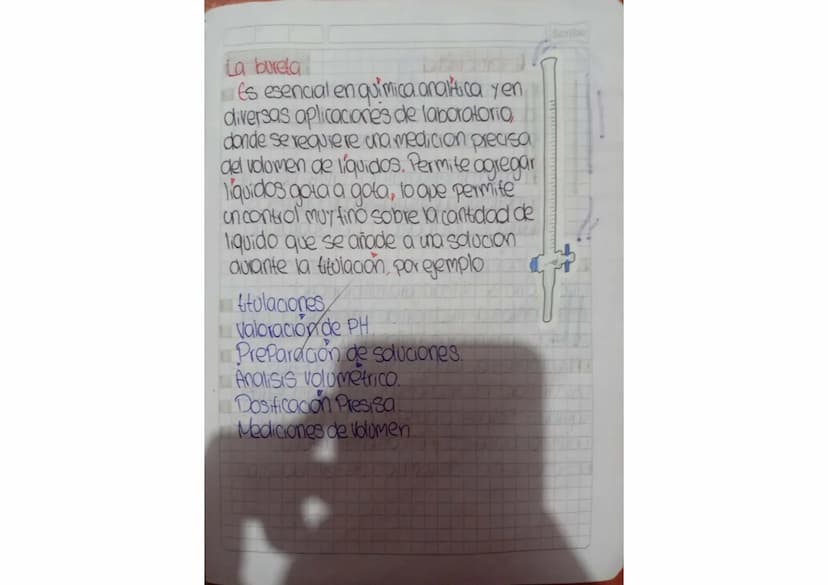 Scribe
La bureta
Es esencial en química analítica y en
diversas aplicaciones de laboratorio,
donde se requiere una medicion precisa
del volumen de líquidos. Permite agregar
líquidos gota a gota, lo que permite
un control muy fino sobre la cantidad de
liquido que se añade a una solucion
durante la titulación, por ejemplo
titulaciones.
Valoración de PH
Preparación de soluciones.
Analisis volumétrico.
Dosificación Presisa
Mediciones de volumen